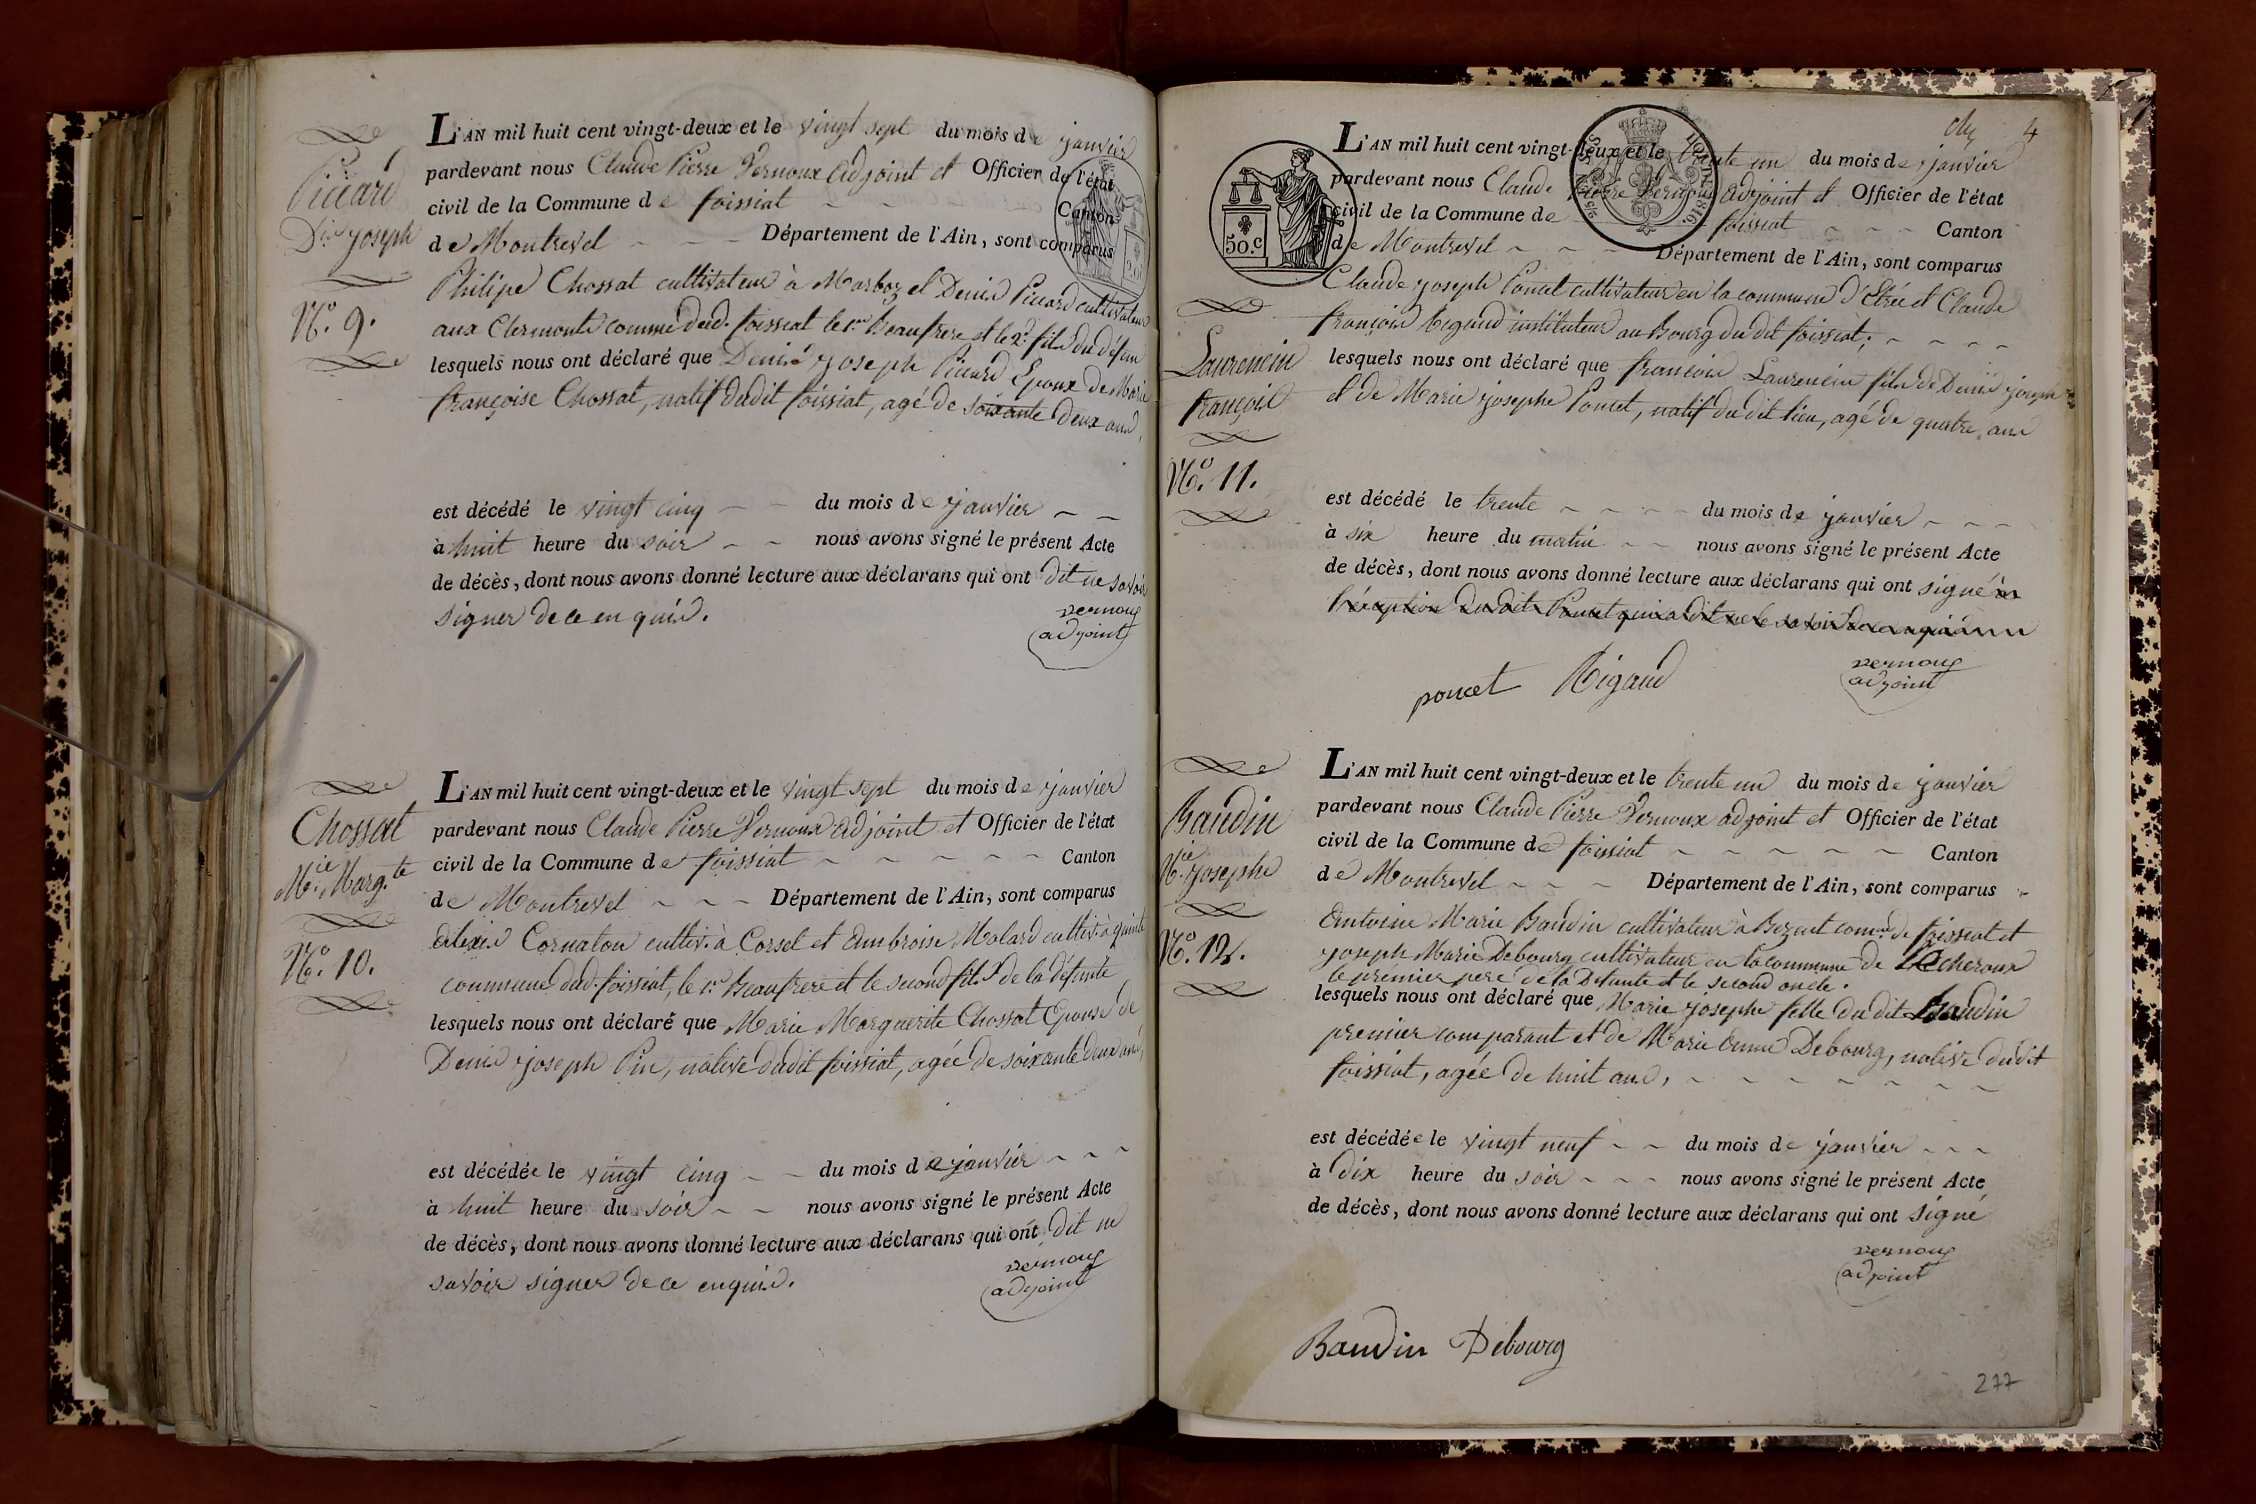 Picard
Dis. joseph
No. 9.
L'AN mil huit cent vingt-deux et le vingt sept du mois de janvier
pardevant nous Claude Pierre Vernoux adjoint et Officier de l'état
civil de la Commune de foissiat Canton
de Montrevel Département de l'Ain, sont comparus
Philipe Chossat cultivateur à Marboz et Denis Picard cultivateur
aux Clermonts comme dud. foissiat le 1er beaufrere et le 2d. fils du défun
lesquels nous ont déclaré que Denis joseph Picard Epoux de Marie
françoise Chossat, natif dudit foissiat, agé de soixante deux ans,
est décédé le vingt cinq du mois de janvier
à huit heure du soir nous avons signé le présent Acte
de décès, dont nous avons donné lecture aux déclarans qui ont dit ne savoir
signer de ce enquis.
vernoux
adjoint
Chossat
Mie. Marg.te
No. 10.
L'AN mil huit cent vingt-deux et le vingt sept du mois de janvier
pardevant nous Claude Pierre Vernoux adjoint et Officier de l'état
civil de la Commune de foissiat Canton
de Montrevel Département de l'Ain, sont comparus
alexis Cornaton cultiv. à Corsel et ambroise Molard cultiv. à
commune dud. foissiat, le 1er beaufrere et le second fils de la défunte
lesquels nous ont déclaré que Marie Marguerite Chossat Epouse de
Denis joseph Pin, native dudit foissiat, agée de soixante deux ans,
est décédée le vingt cinq du mois de janvier
à huit heure du soir nous avons signé le présent Acte
de décès, dont nous avons donné lecture aux déclarans qui ont dit ne
savoir signer de ce enquis.
vernoux
adjoint
4
50.c
1816.
Laurencin
françois
No. 11.
L'AN mil huit cent vingt-deux et le trente un du mois de janvier
pardevant nous Claude Pierre Vernoux adjoint et Officier de l'état
civil de la Commune de foissiat Canton
de Montrevel Département de l'Ain, sont comparus
Claude joseph Poncet cultivateur en la commune d'Etrée et Claude
françois Rigaud instituteur au bourg du dit foissiat;
lesquels nous ont déclaré que françois Laurencin fils de Denis joseph
et de Marie josephe Poncet, natif du dit lieu, agé de quatre ans
est décédé le trente du mois de janvier
à six heure du matin nous avons signé le présent Acte
de décès, dont nous avons donné lecture aux déclarans qui ont signé à
l'éxception dudit Poncet qui a dit ne le savoir de ce enquis
poncet Rigaud
vernoux
adjoint
Baudin
Mie. josephe
No. 12.
L'AN mil huit cent vingt-deux et le trente un du mois de janvier
pardevant nous Claude Pierre Vernoux adjoint et Officier de l'état
civil de la Commune de foissiat Canton
de Montrevel Département de l'Ain, sont comparus
Antoine Marie Baudin cultivateur à Bezent comne. de foissiat et
joseph Marie Debourg cultivateur en la commune de Lécheroux
le premier pere de la Défunte et le second oncle.
lesquels nous ont déclaré que Marie josephe fille du dit Baudin
premier comparant et de Marie Anne Debourg, native dudit
foissiat, agée de huit ans,
est décédée le vingt neuf du mois de janvier
à dix heure du soir nous avons signé le présent Acte
de décès, dont nous avons donné lecture aux déclarans qui ont signé
vernoux
adjoint
Baudin Debourg
277